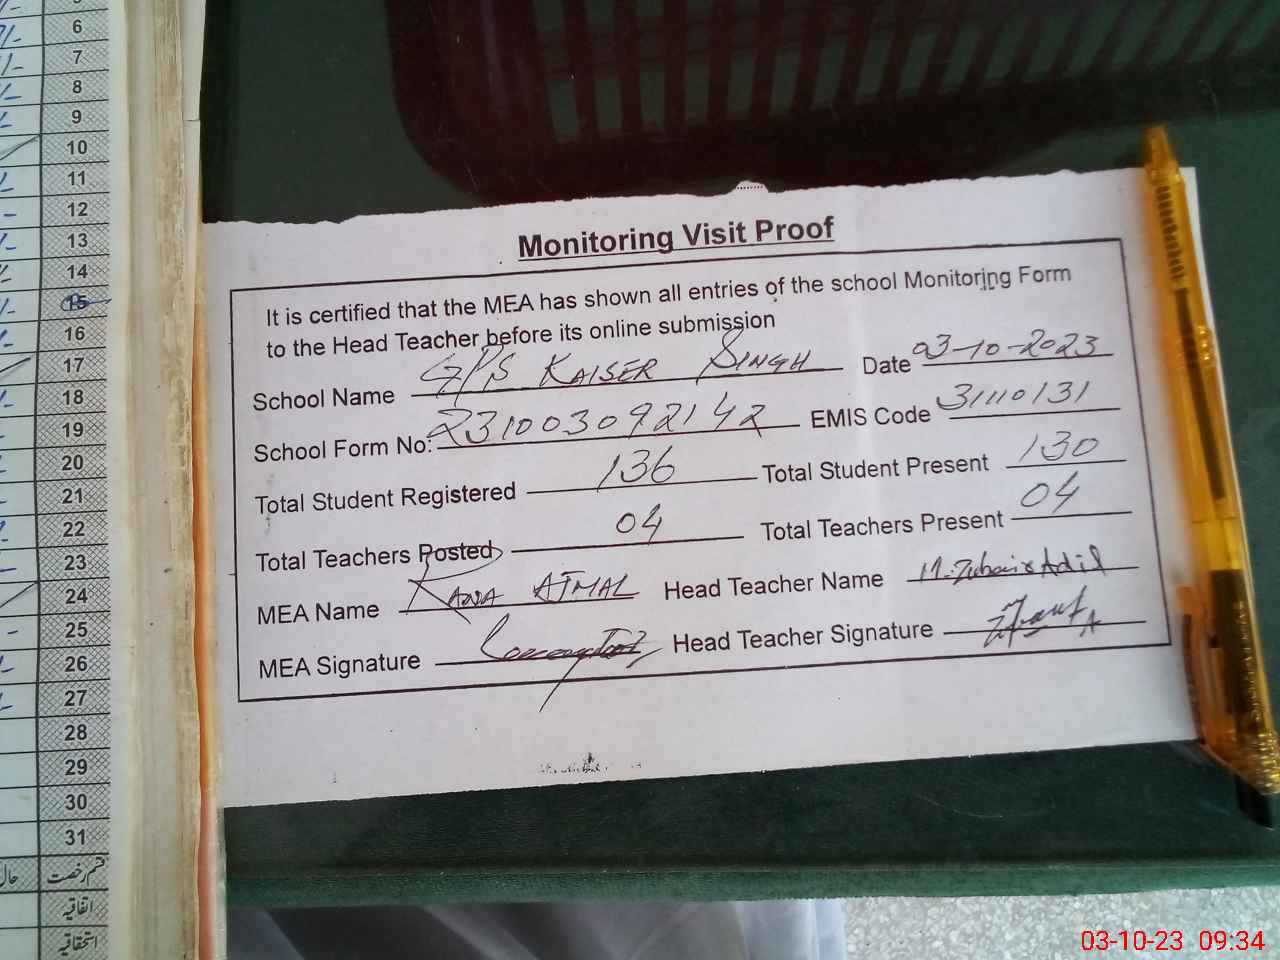 6
7
8
9
10
11
12
13
14
15
16
17
18
19
20
21
22
23
24
25
26
27
28
29
30
31
قسم رخصت
اتفاقیہ
استحقاقیہ
Monitoring Visit Proof
It is certified that the MEA has shown all entries of the school Monitoring Form
to the Head Teacher before its online submission
School Name GPS KAISER SINGH Date 03-10-2023
School Form No: 231003092142 EMIS Code 31110131
Total Student Registered 136 Total Student Present 130
Total Teachers Posted 04 Total Teachers Present 04
MEA Name RANA AJMAL Head Teacher Name M. Zubair Adil
MEA Signature Head Teacher Signature
03-10-23 09:34